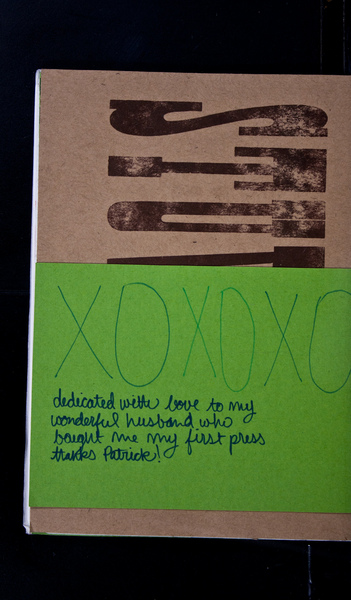 STU
XOXOXO
dedicated with love to my
wonderful husband who
bought me my first press
thanks Patrick!